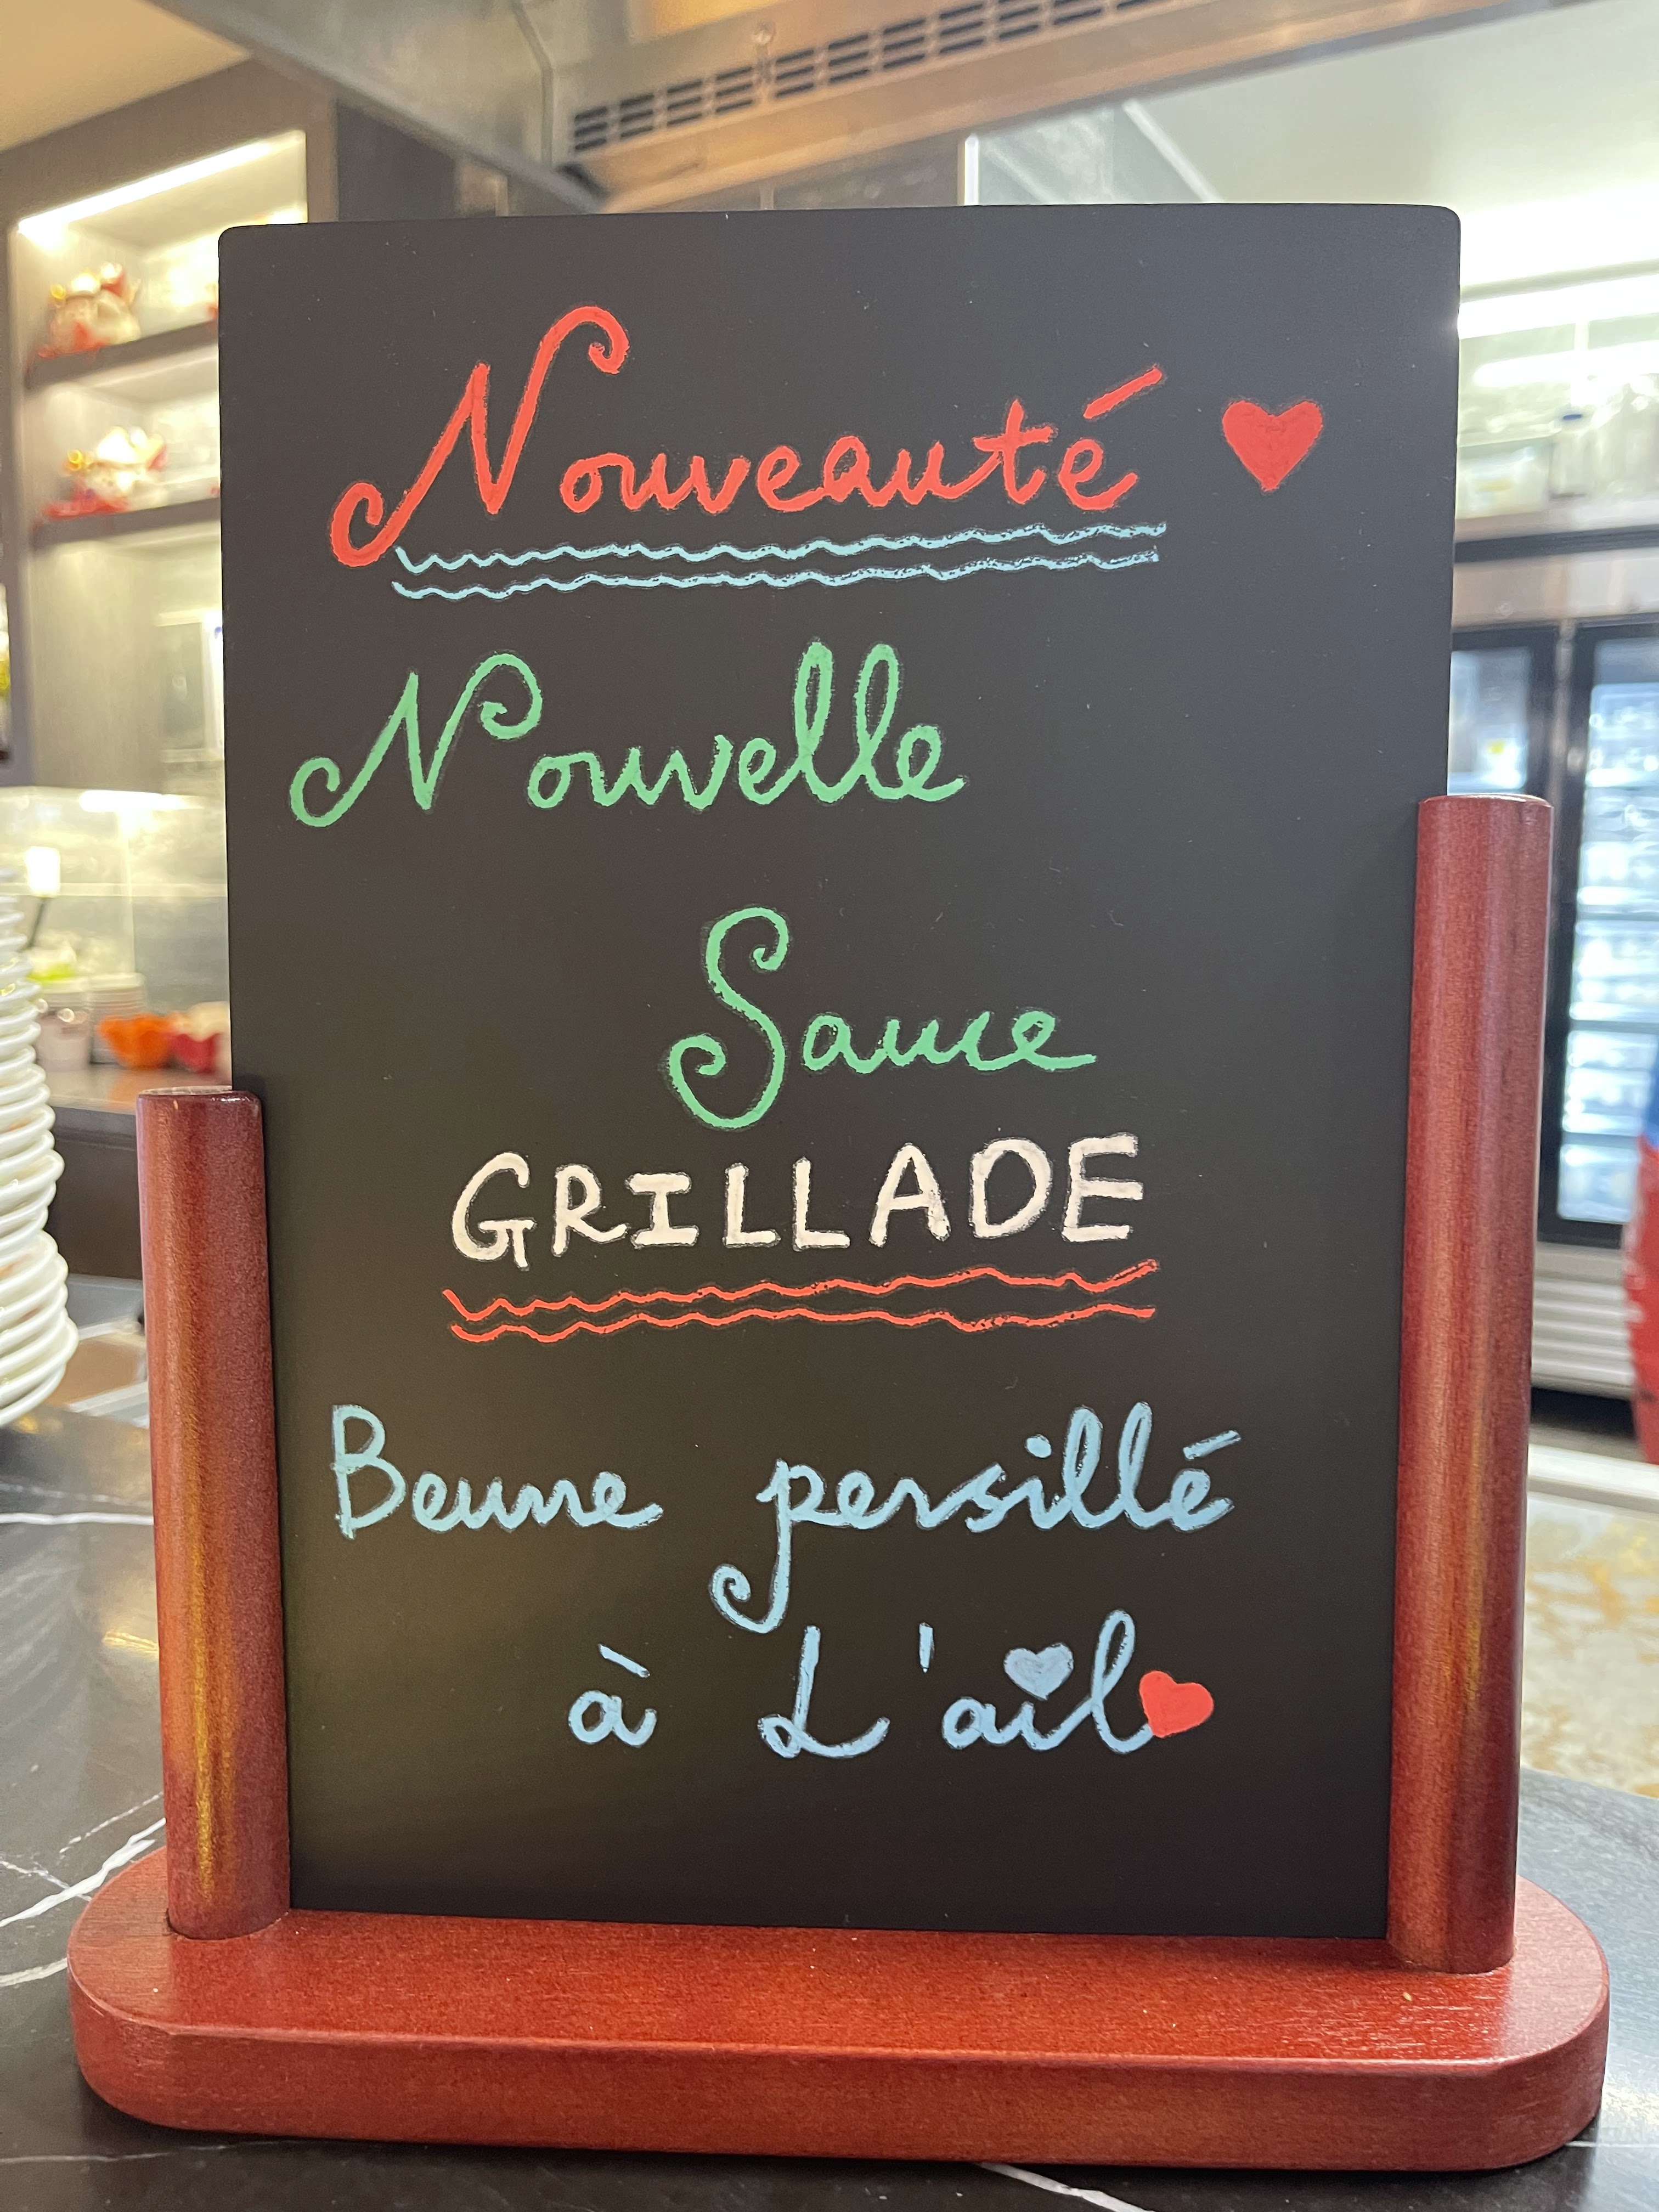 Nouveauté
Nouvelle
Sauce
GRILLADE
Beurre persillé
à L'ail